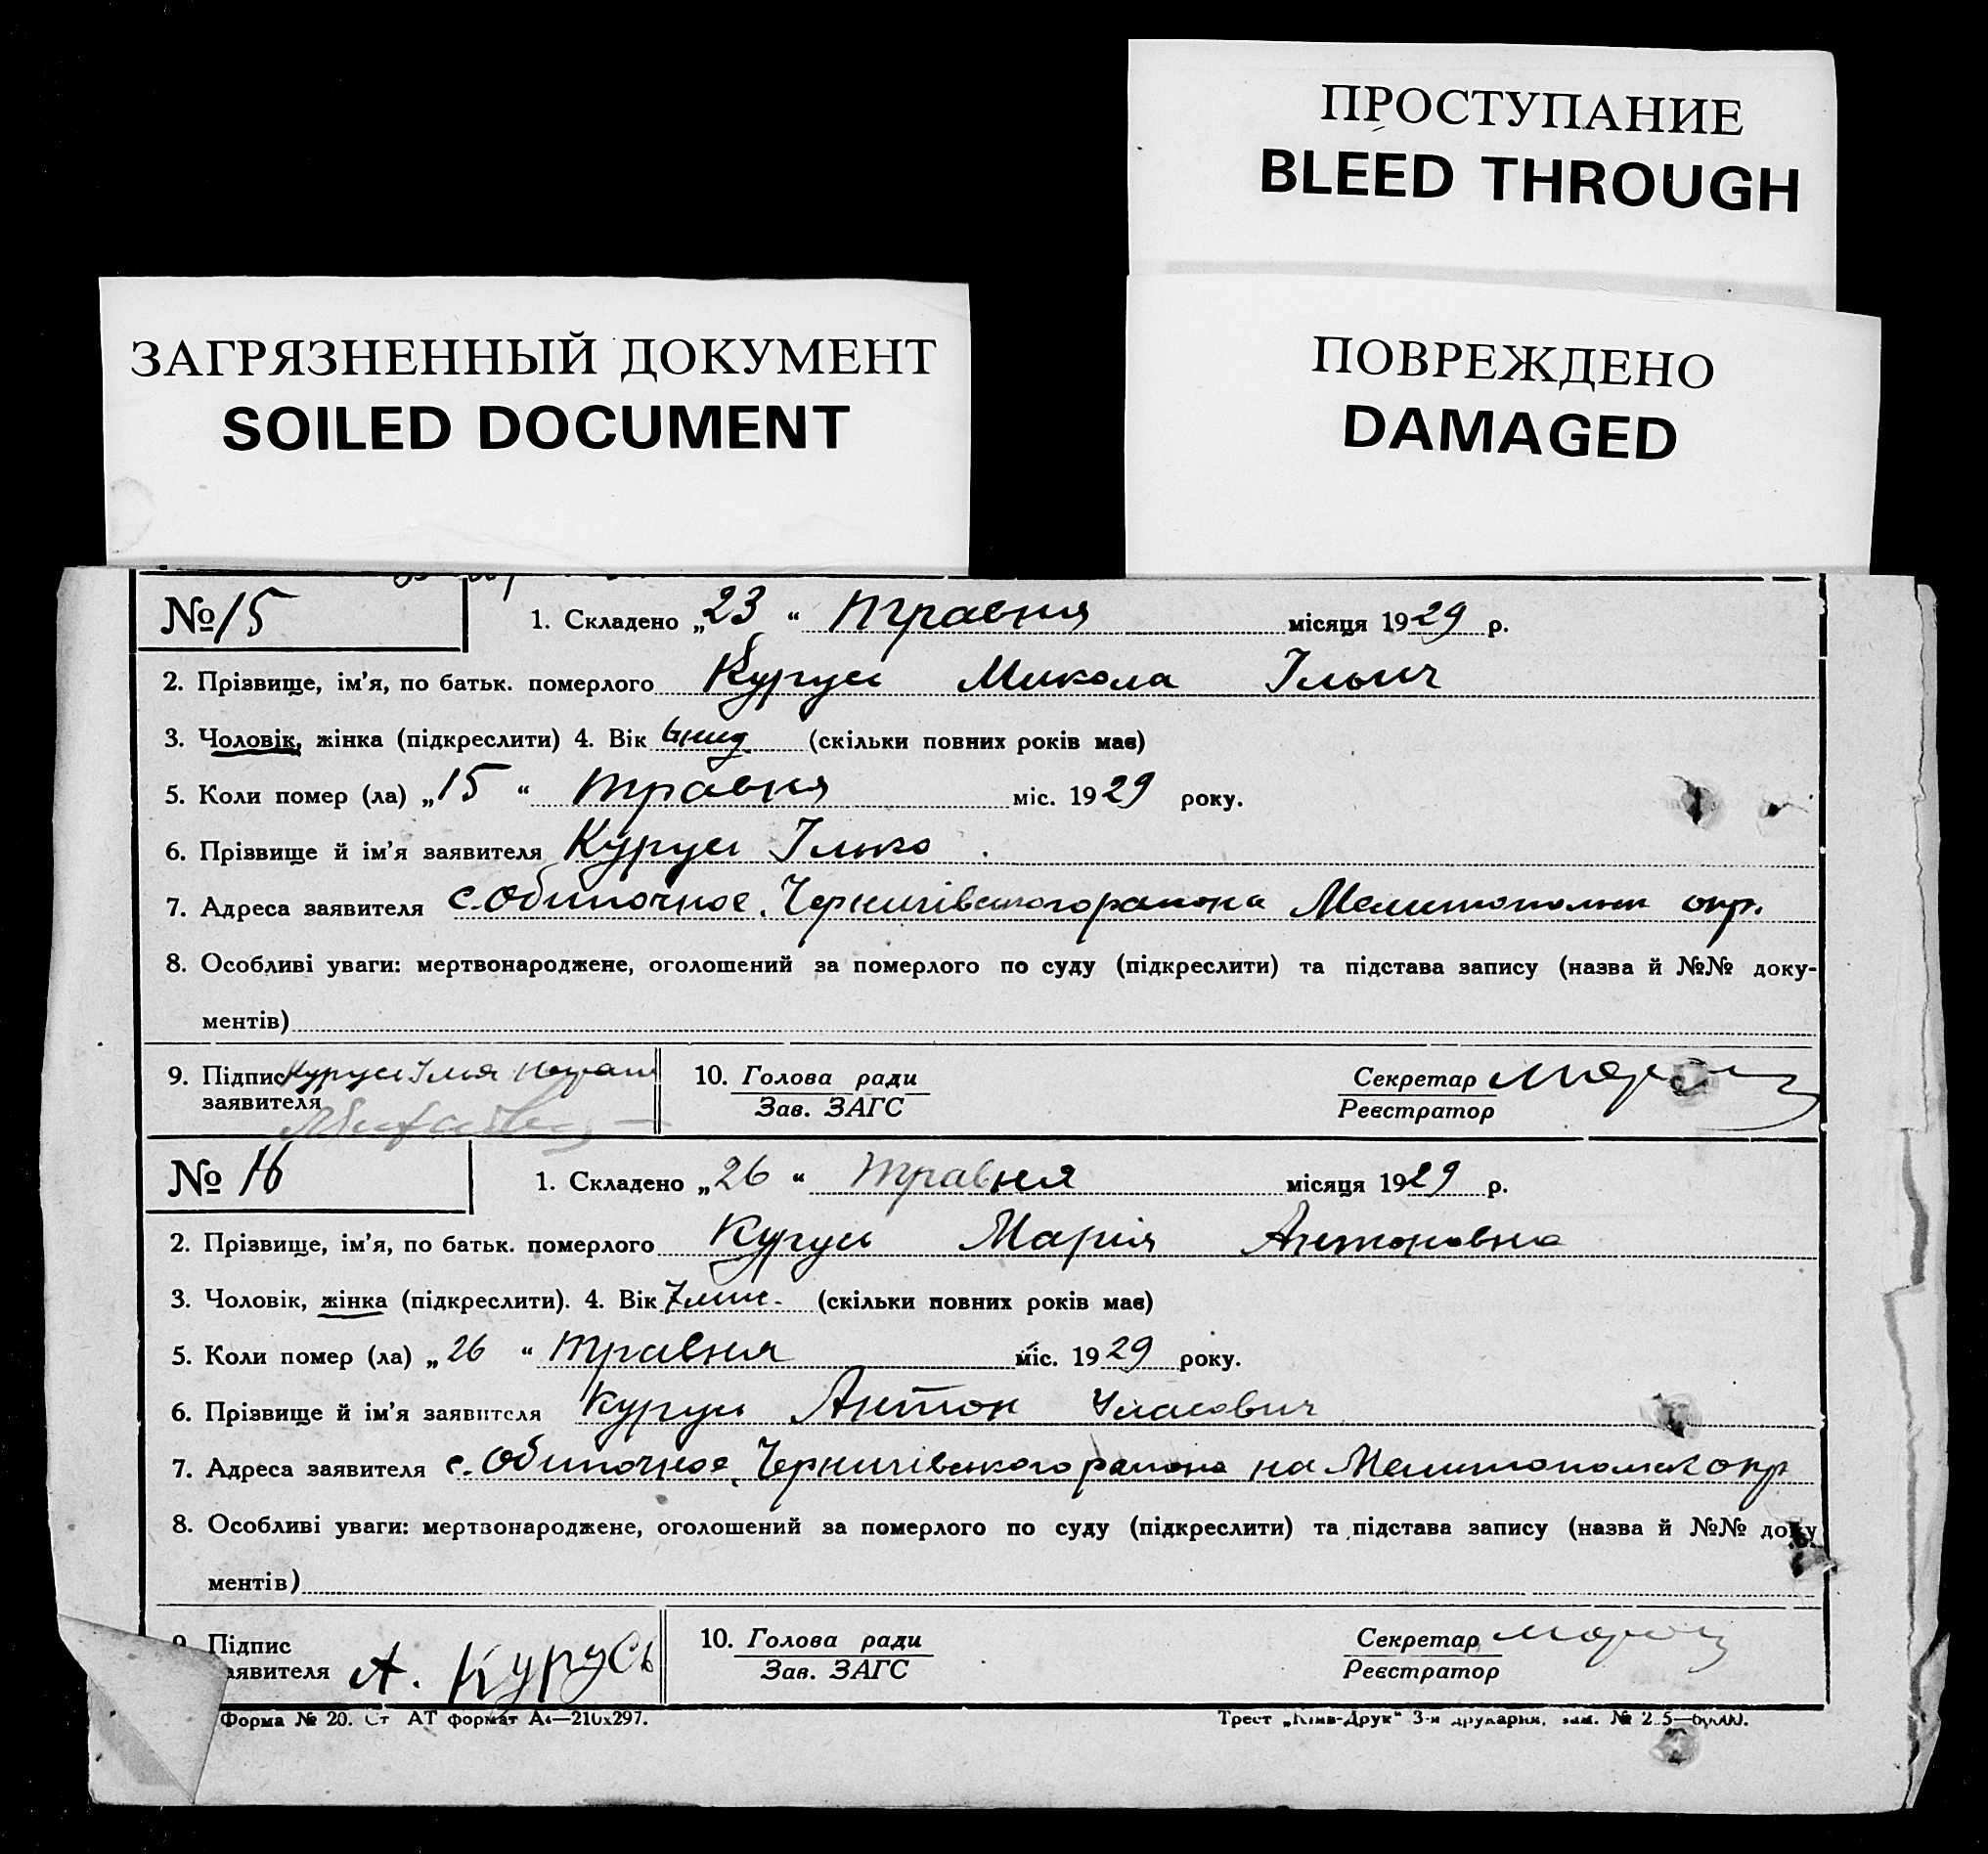 ПРОСТУПАНИЕ
BLEED THROUGH
ЗАГРЯЗНЕННЫЙ ДОКУМЕНТ
SOILED DOCUMENT
ПОВРЕЖДЕНО
DAMAGED
№ 15 1. Складено „23“ травня місяця 1929 р.
2. Прізвище, ім'я, по батьк. померлого Курусь Микола Ільич
3. Чоловік, жінка (підкреслити) 4. Вік (скільки повних років має)
5. Коли помер (ла) „15“ травня міс. 1929 року.
6. Прізвище й ім'я заявителя Курусь Ілько
7. Адреса заявителя с. Обиточное, Чернигівського района Мелитопольск окр.
8. Особливі уваги: мертвонароджене, оголошений за померлого по суду (підкреслити) та підстава запису (назва й №№ доку-
ментів)
9. Підпис Курусь Ілья 10. Голова ради Секретар
заявителя Зав. ЗАГС Реєстратор
№ 16 1. Складено „26“ травня місяця 1929 р.
2. Прізвище, ім'я, по батьк. померлого Курусь Марія Антоновна
3. Чоловік, жінка (підкреслити). 4. Вік 7 (скільки повних років має)
5. Коли помер (ла) „26“ травня міс. 1929 року.
6. Прізвище й ім'я заявителя Курусь Антон Уласович
7. Адреса заявителя с. Обиточное, Чернигівського района на Мелитопольск окр
8. Особливі уваги: мертвонароджене, оголошений за померлого по суду (підкреслити) та підстава запису (назва й №№ доку
ментів)
9. Підпис 10. Голова ради Секретар
заявителя А. Курусь Зав. ЗАГС Реєстратор
Форма № 20. Ст АТ формат А4—210х297. Трест „Київ-Друк“ 3-я друкарня, зам. №